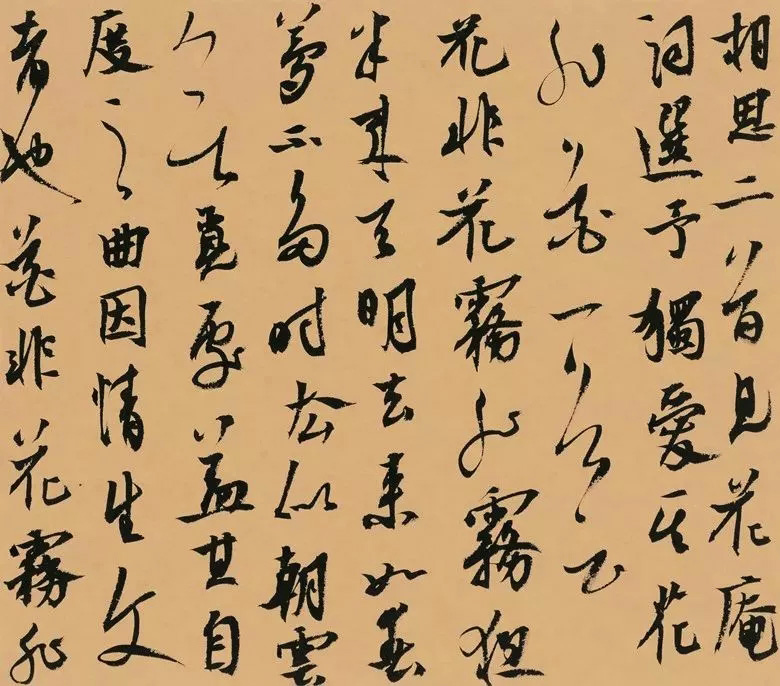 相思二首見花庵
詞選予獨愛其花
非花一首云
花非花霧非霧夜
半來天明去來如春
夢不多時去似朝雲
無覓處蓋其自
度之曲因情生文
者也花非花霧非